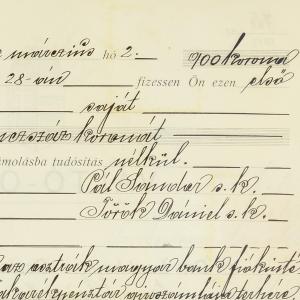 márczius hó 2. 900 korona
28-án fizessen Ön ezen első
saját
koronát
tudósítás nélkül.
Pál Sándor s. k.
Török Dániel s. k.
az osztrák magyar bank